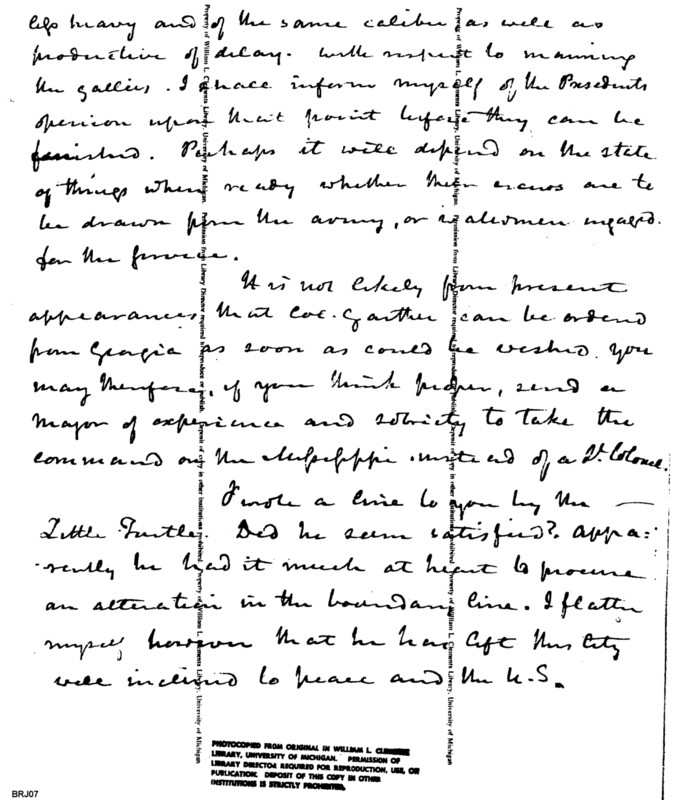 less heavy and of the same caliber as well as
productive of delay. With respect to manning
the gallies. I shall inform myself of the Presidents
opinion upon that point before they can be
finished. Perhaps it will depend on the state
of things when ready whether their crews are to
be drawn from the army, or watermen engaged
for the service.
It is not likely from present
appearances that Col. Gaither can be ordered
from Georgia as soon as could be wished. you
may therefore, if you think proper, send a
major of experience and sobriety to take the
command on the Mississippi instead of a Lt. Colonel.
I wrote a line to you by the —
Little Turtle. Did he seem satisfied? appa:
rently he had it much at heart to procure
an alteration in the boundary line. I flatter
myself however that he has left this City
well inclined to peace and the U.S.
Property of William L. Clements Library, University of Michigan. Permission from Library Director required for reproduction, use or publication. Deposit of copy in other institutions prohibited. Property of William L. Clements Library, University of Michigan
Property of William L. Clements Library, University of Michigan. Permission from Library Director required for reproduction, use or publication. Deposit of copy in other institutions prohibited. Property of William L. Clements Library, University of Michigan
PHOTOCOPIED FROM ORIGINAL IN WILLIAM L. CLEMENTS
LIBRARY, UNIVERSITY OF MICHIGAN. PERMISSION OF
LIBRARY DIRECTOR REQUIRED FOR REPRODUCTION, USE, OR
PUBLICATION. DEPOSIT OF THIS COPY IN OTHER
INSTITUTIONS IS STRICTLY PROHIBITED.
BRJ07